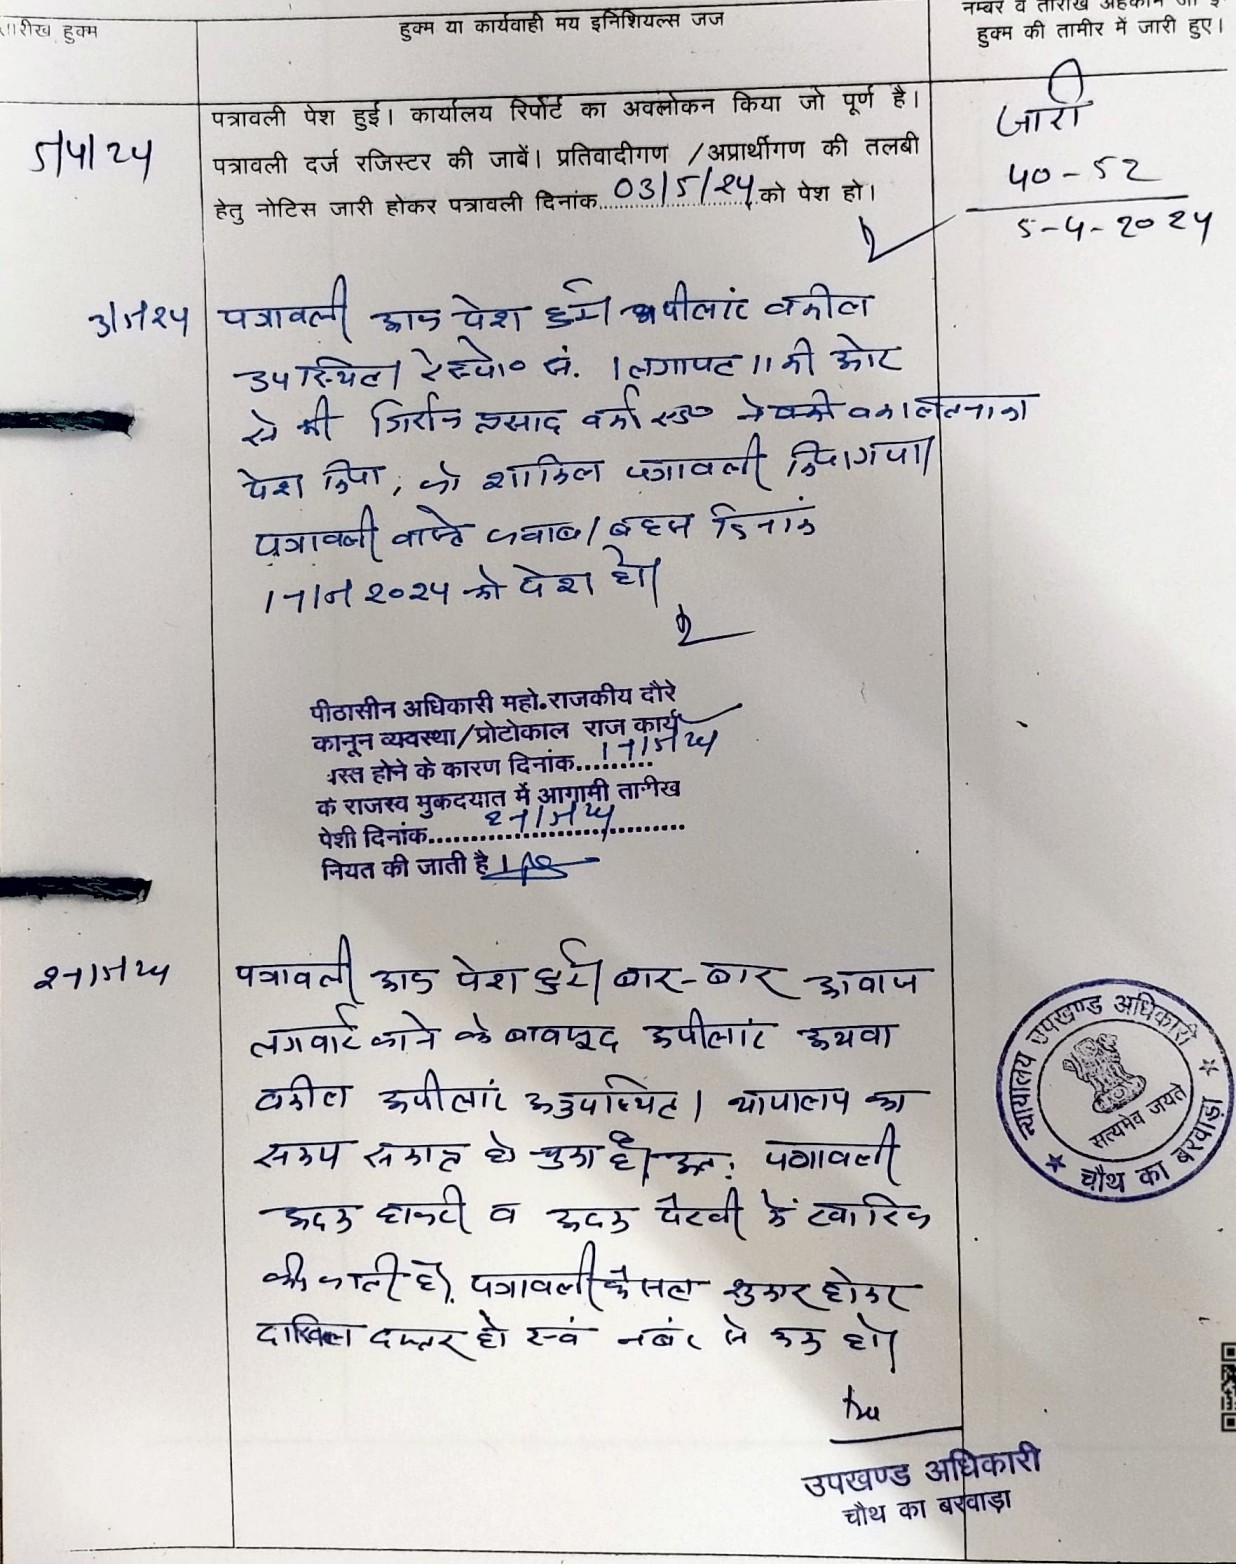 तारीख हुक्म
हुक्म या कार्यवाही मय इनिशियल्स जज
नम्बर व तारीख अहकाम जो इस
हुक्म की तामीर में जारी हुए।
5/4/24
पत्रावली पेश हुई। कार्यालय रिपोर्ट का अवलोकन किया जो पूर्ण है।
पत्रावली दर्ज रजिस्टर की जावें। प्रतिवादीगण /अप्रार्थीगण की तलबी
हेतु नोटिस जारी होकर पत्रावली दिनांक 03/5/24 को पेश हो।
जारी
40-52
5-4-2024
3/5/24
पत्रावली आज पेश हुई। अपीलांट वकील
उपस्थित। रेस्पो० सं. 1 लगायत 11 की ओर
से श्री गिर्राज प्रसाद वर्मा एड० ने वकालतनामा
पेश किया, जो शामिल पत्रावली किया गया।
पत्रावली वास्ते जवाब/बहस दिनांक
17/5/2024 को पेश हो।
पीठासीन अधिकारी महो.राजकीय दौरे
कानून व्यवस्था/प्रोटोकाल राज कार्य
व्यस्त होने के कारण दिनांक.........17/5/24
के राजस्व मुकदयात में आगामी तारीख
पेशी दिनांक..............................27/5/24
नियत की जाती है
27/5/24
पत्रावली आज पेश हुई। बार-बार आवाज
लगवाई जाने के बावजूद अपीलांट अथवा
वकील अपीलांट अनुपस्थित। न्यायालय का
समय समाप्त हो चुका है। अतः पत्रावली
अदम हाजरी व अदम पैरवी में खारिज
की जाती है। पत्रावली फैसल शुमार होकर
दाखिल दफ्तर हो एवं नबंर से कम हो।
न्यायालय उपखण्ड अधिकारी
सत्यमेव जयते
चौथ का बरवाड़ा
उपखण्ड अधिकारी
चौथ का बरवाड़ा